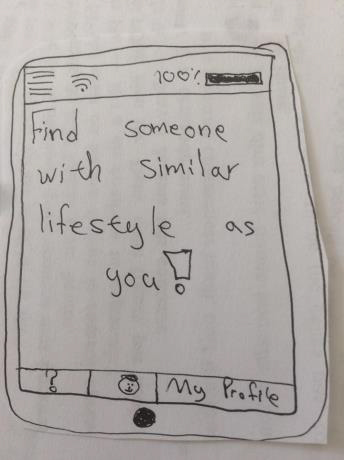 100%
Find someone
with similar
lifestyle as
you!
?
My Profile